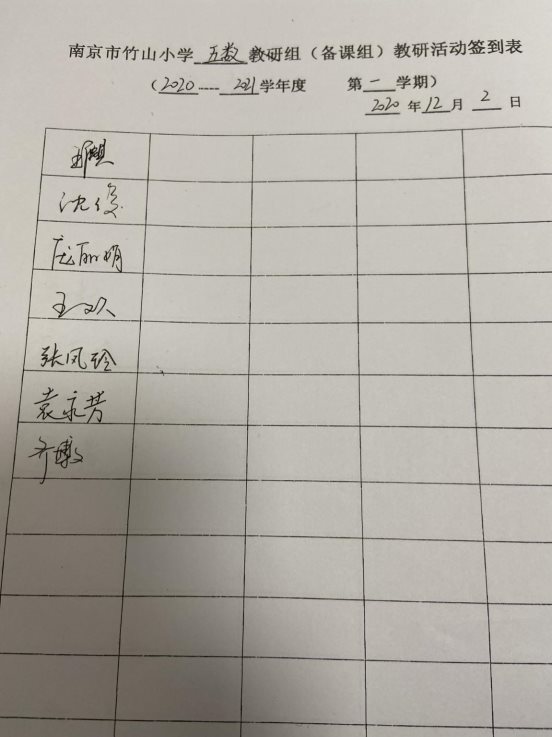 南京市竹山小学 五数 教研组（备课组）教研活动签到表
（2020----2021学年度 第一学期）
2020 年 12 月 2 日
沈俊
庞丽娟
王欢
张凤玲
袁永芳